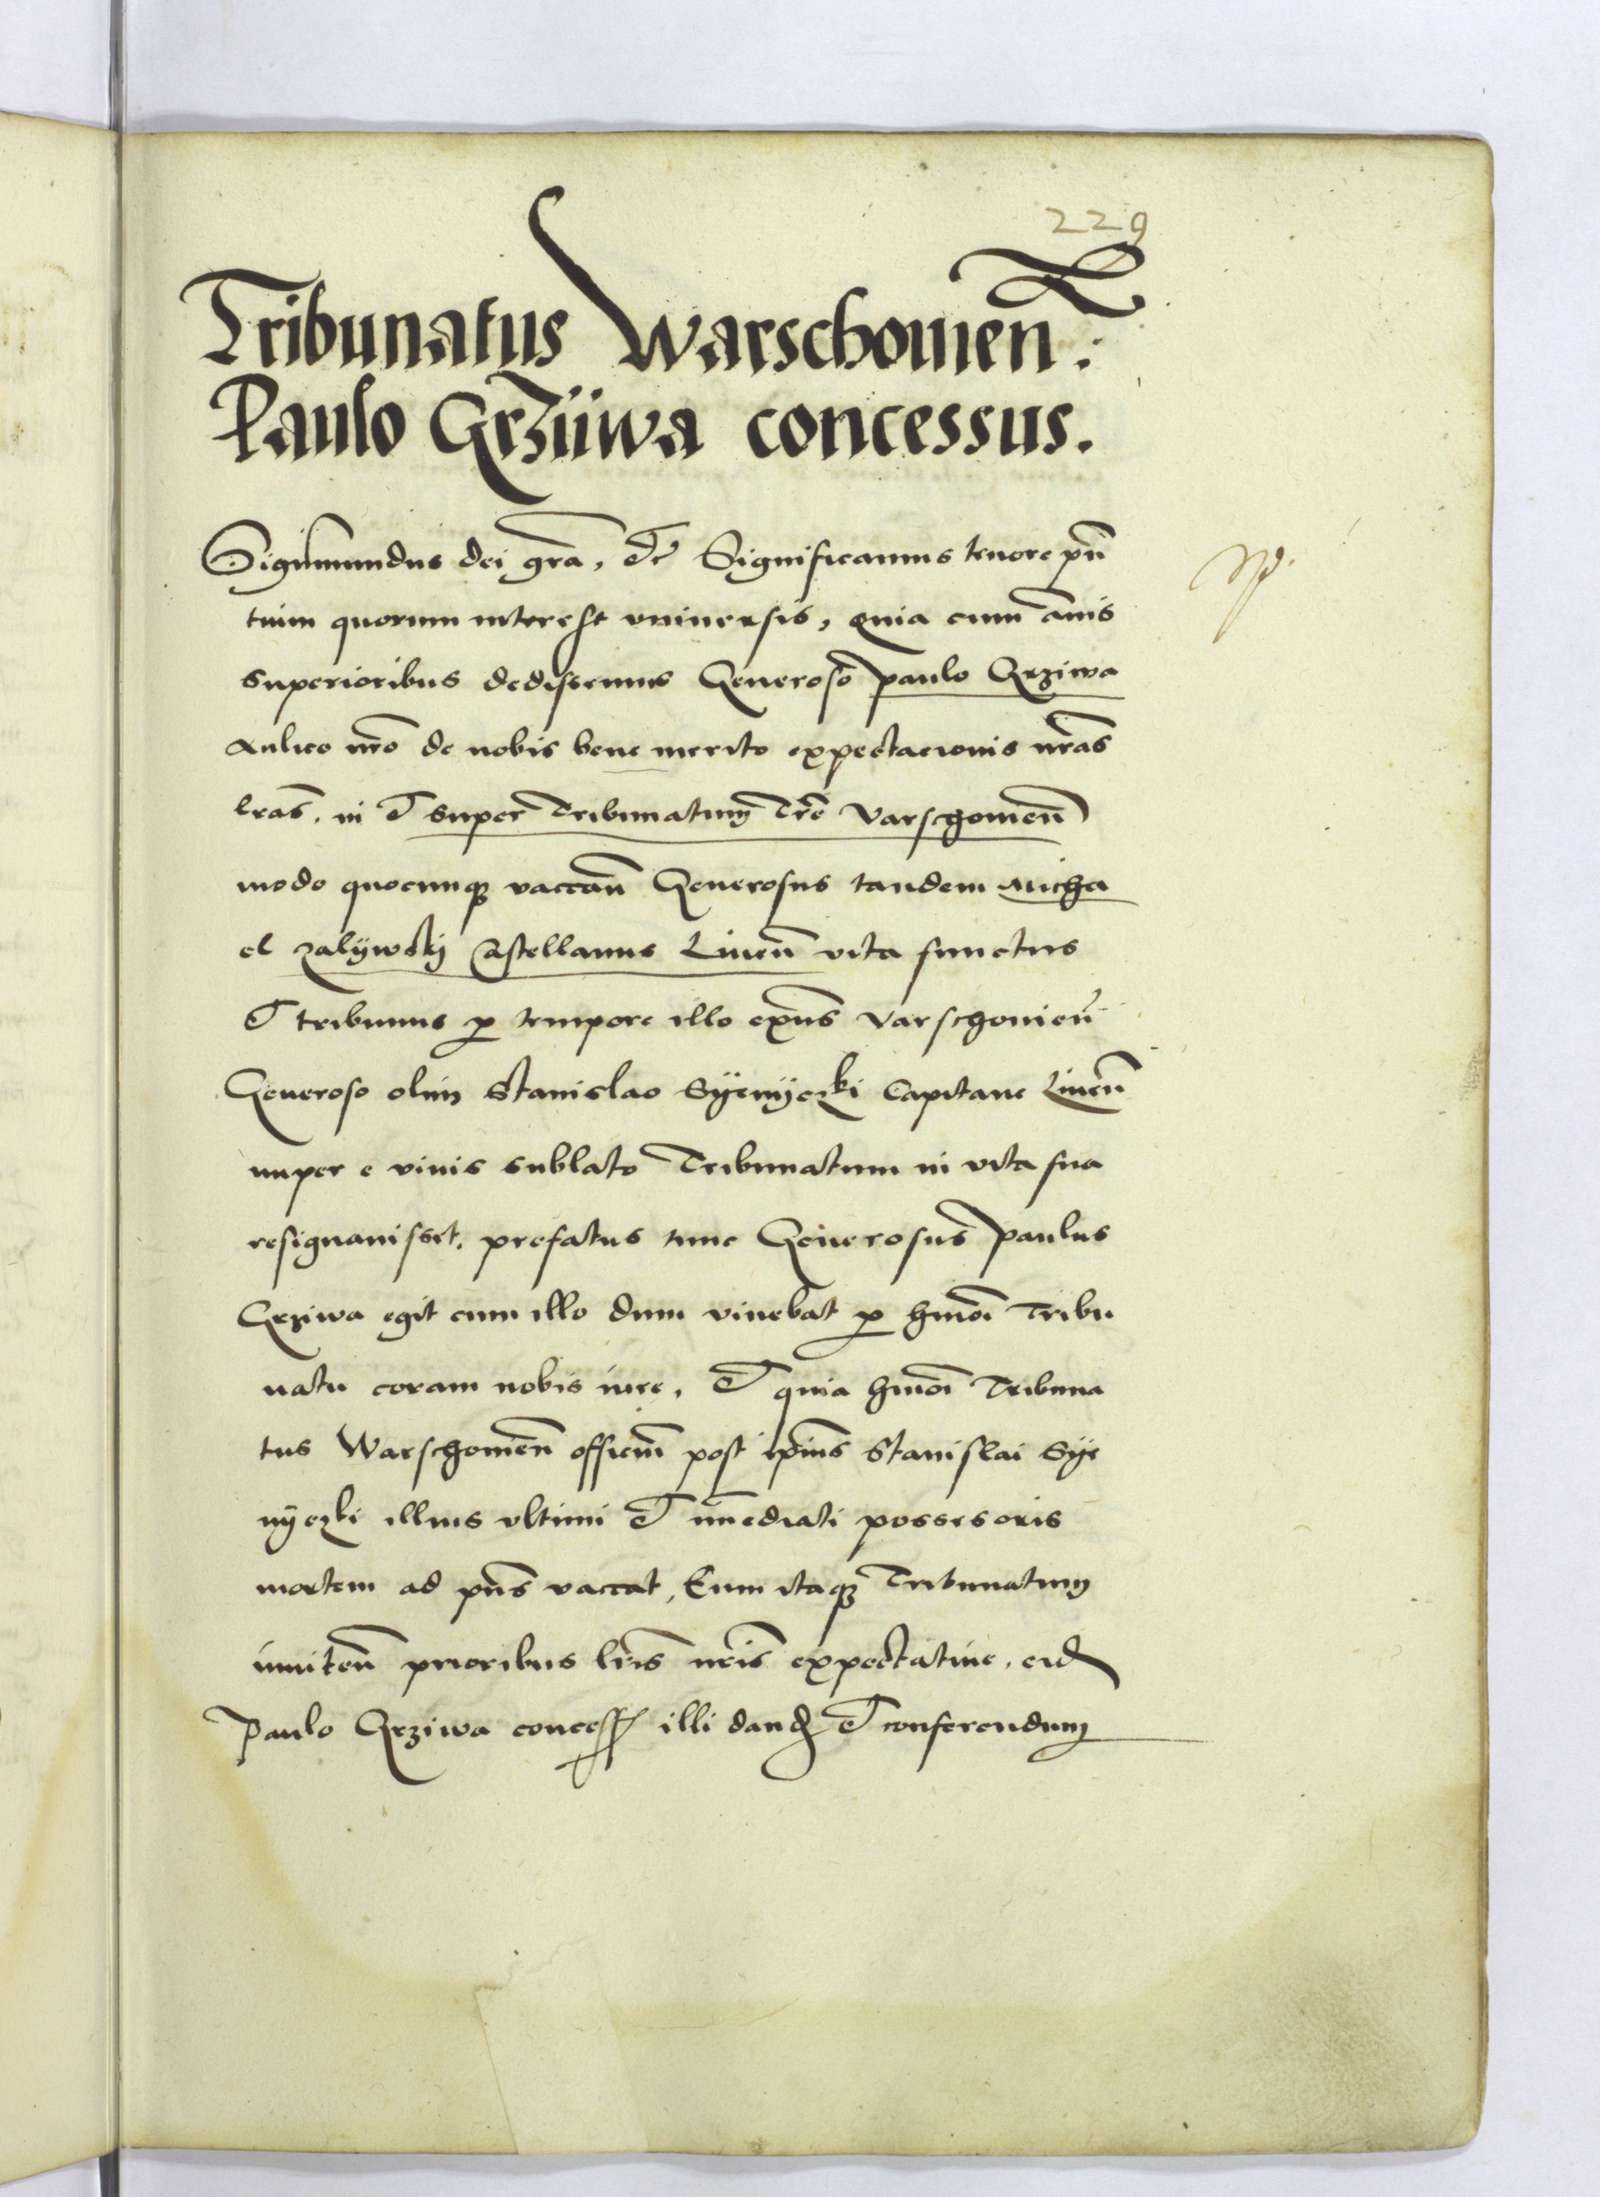 229
Tribunatus Warschouien̄.
Paulo Grziiwa concessus.
Sigismundus dei gra, Etc Significamus tenore pn̄
tium quorum interest vniuersis, quia cum annis
superioribus dedissemus Generoso Paulo Grziwa
Aulico nr̄o de nobis bene merito expectacionis nr̄as
lr̄as, in et super Tribunatum Tr̄e Varschouien̄
modo quocunq vaccan̄ Generosus tandem Micha
el Zalÿwskÿ Castellanus Liuen̄ vita functus
et tribunus p tempore illo exn̄s Varschouien̄
Generoso olim Stanislao Sÿenÿczki Capitaneo Liuen̄
nuper e viuis sublato Tribunatum in vita sua
resignauisset, prefatus tunc Generosus Paulus
Grziwa egit cum illo dum viuebat p hmōi Tribu
natu coram nobis iure, Et quia hmōi Tribuna
tus Warschouien̄ officiū post ip̄ius Stanislai Sÿe
nÿczki illius vltimi et im̄ediati possesoris
mortem ad pn̄s vaccat, Eum itaq Tribunatum
inniten̄ prioribus lr̄is nr̄is expectatiue, eid
Paulo Grziwa concess illi dand et conferendum